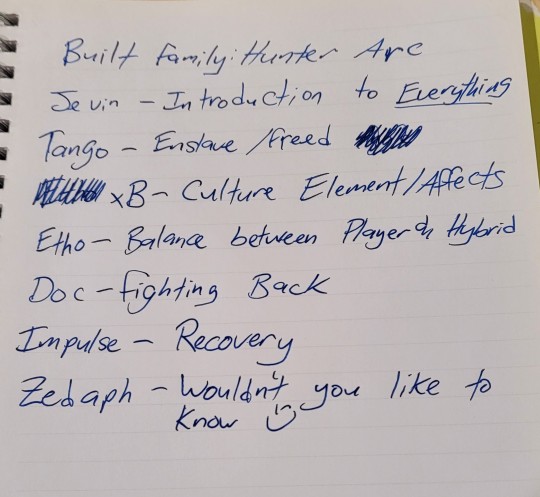 Built Family: Hunter Arc
Jevin - Introduction to Everything
Tango - Enslave/Freed
xB - Culture Element/Affects
Etho - Balance between Player & Hybrid
Doc - Fighting Back
Impulse - Recovery
Zedaph - Wouldn't you like to
Know :)